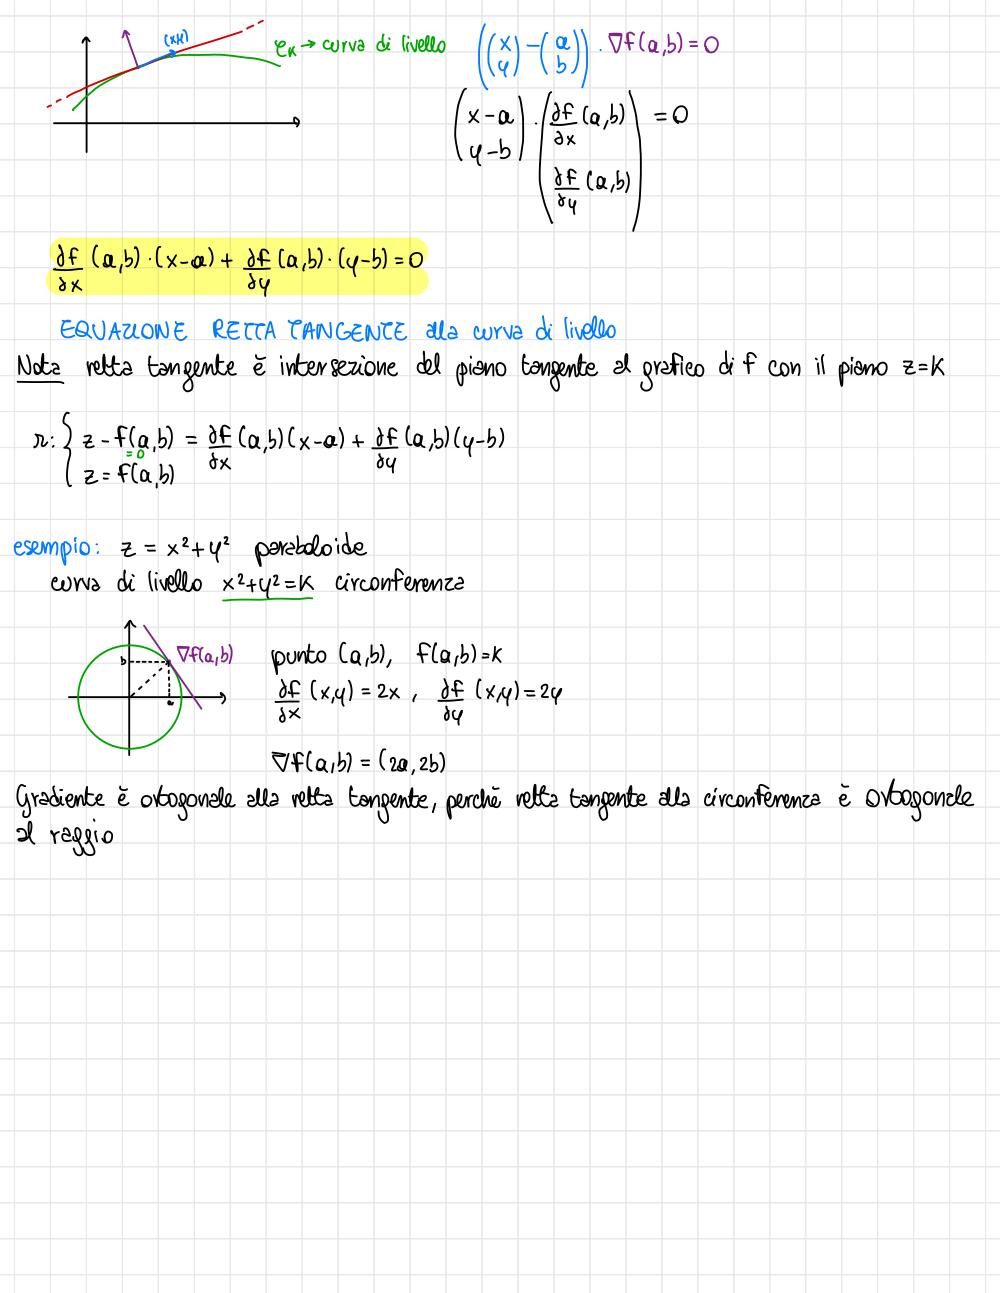 (x,y)
𝒞ₖ → curva di livello
((x y) − (a b)) · ∇f(a,b) = 0
(x−a y−b) · (∂f/∂x (a,b) ∂f/∂y (a,b)) = 0
∂f/∂x (a,b)·(x−a) + ∂f/∂y (a,b)·(y−b) = 0
EQUAZIONE RETTA TANGENTE alla curva di livello
Nota retta tangente è intersezione del piano tangente al grafico di f con il piano z=K
r: { z − f(a,b) = ∂f/∂x (a,b)(x−a) + ∂f/∂y (a,b)(y−b)
=0
z = f(a,b)
esempio: z = x²+y² paraboloide
curva di livello x²+y²=K circonferenza
b
∇f(a,b)
a
punto (a,b), f(a,b)=K
∂f/∂x (x,y) = 2x , ∂f/∂y (x,y) = 2y
∇f(a,b) = (2a, 2b)
Gradiente è ortogonale alla retta tangente, perchè retta tangente alla circonferenza è ortogonale
al raggio